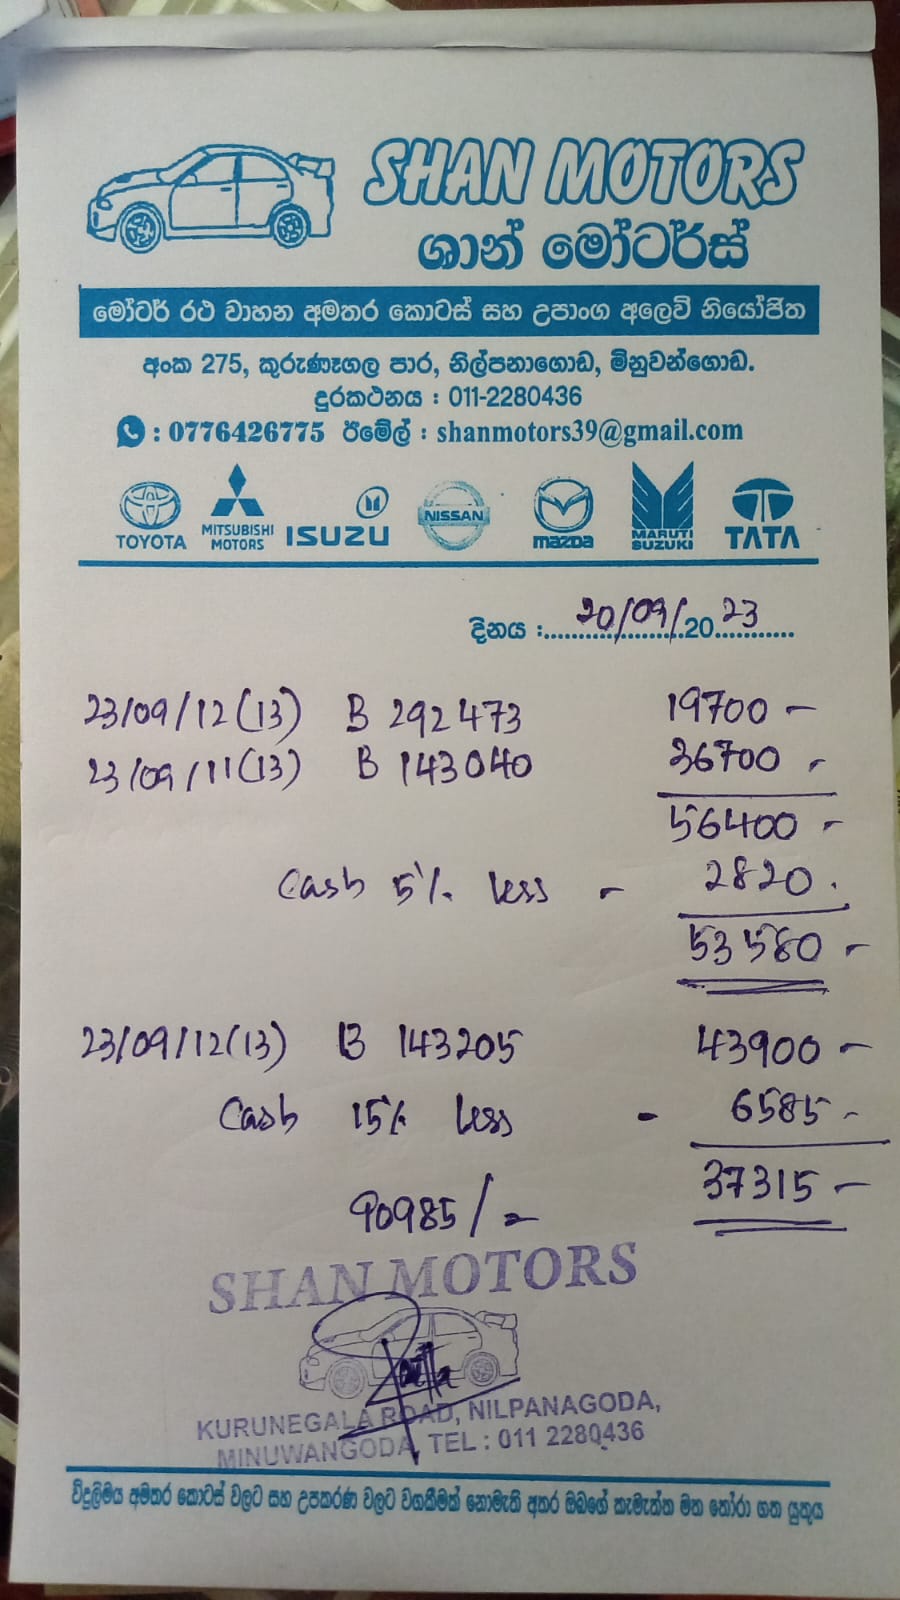 SHAN MOTORS
ශාන් මෝටර්ස්
මෝටර් රථ වාහන අමතර කොටස් සහ උපාංග අලෙවි නියෝජිත
අංක 275, කුරුණෑගල පාර, නිල්පනාගොඩ, මිනුවන්ගොඩ.
දුරකථනය : 011-2280436
: 0776426775 ඊමේල් : shanmotors39@gmail.com
TOYOTA MITSUBISHI MOTORS ISUZU NISSAN mazda MARUTI SUZUKI TATA
දිනය : 20/09/2023
23/09/12(13) B 292473 19700 -
23/09/11(13) B 143040 36700 -
56400 -
Cash 5% less - 2820.
53580 -
23/09/12(13) B 143205 43900 -
Cash 15% less - 6585 -
37315 -
90985/=
SHAN MOTORS
KURUNEGALA ROAD, NILPANAGODA,
MINUWANGODA, TEL : 011 2280436
විදුලිමය අමතර කොටස් වලට සහ උපකරණ වලට වගකීමක් නොමැති අතර ඔබගේ කැමැත්ත මත තෝරා ගත යුතුය